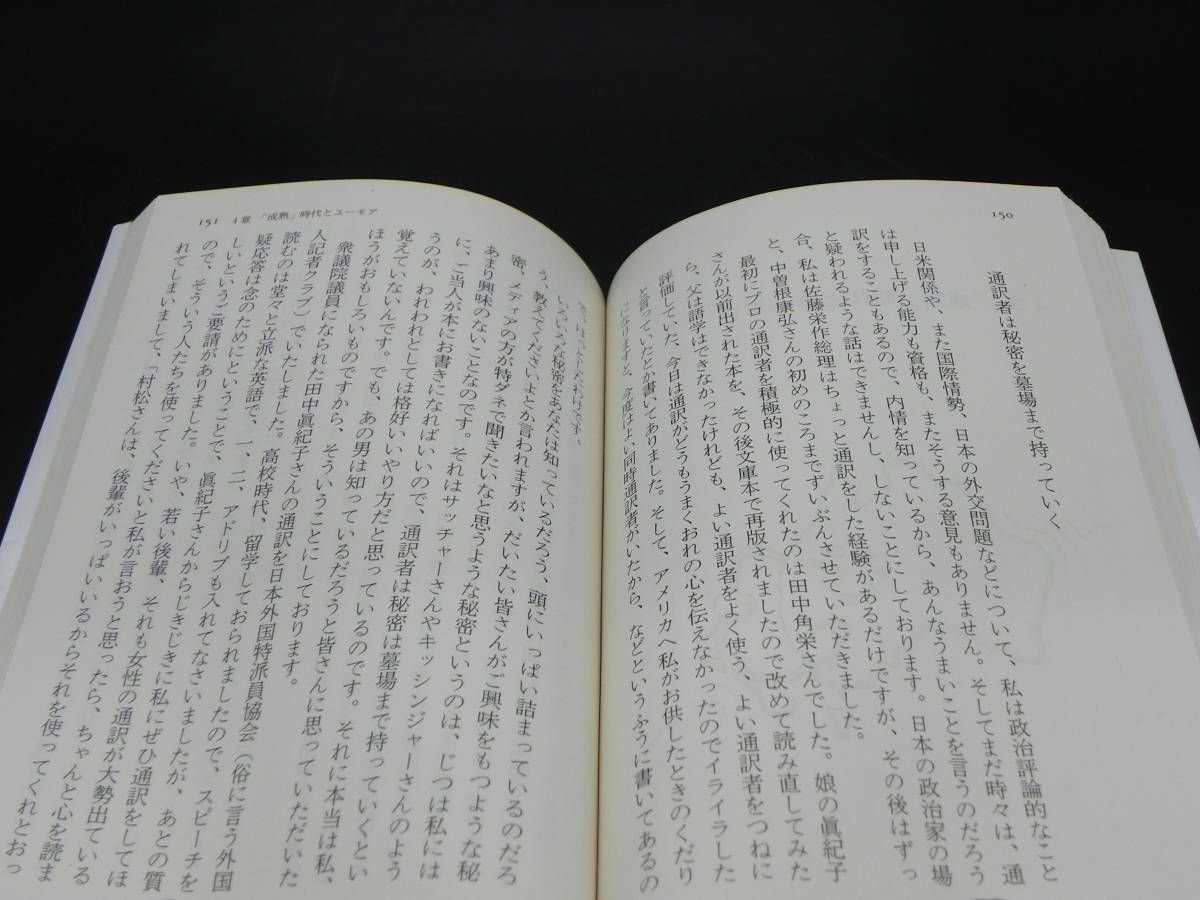 150
通訳者は秘密を墓場まで持っていく
日米関係や、また国際情勢、日本の外交問題などについて、私は政治評論的なこと
は申し上げる能力も資格も、またそうする意見もありません。そしてまだ時々は、通
訳をすることもあるので、内情を知っているから、あんなうまいことを言うのだろう
と疑われるような話はできませんし、しないことにしております。日本の政治家の場
合、私は佐藤栄作総理はちょっと通訳をした経験があるだけですが、その後はずっ
と、中曽根康弘さんの初めのころまでずいぶんさせていただきました。
最初にプロの通訳者を積極的に使ってくれたのは田中角栄さんでした。娘の眞紀子
さんが以前出された本を、その後文庫本で再版されましたので改めて読み直してみた
ら、父は語学はできなかったけれども、よい通訳者をよく使う、よい通訳者をつねに
評価していた、今日は通訳がどうもうまくおれの心を伝えなかったのでイライラした
と言っていたとか書いてありました。そして、アメリカへ私がお供したときのくだり
になりますと、今度はよい同時通訳者がいたから、などというふうに書いてあるの
151 4章 「成熟」時代とユーモア
いろいろな秘密をあなたは知っているだろう、頭にいっぱい詰まっているのだろ
う、教えてくださいよとか言われますが、だいたい皆さんがご興味をもつような秘
密、メディアの方が特ダネで聞きたいなと思うような秘密というのは、じつは私には
あまり興味のないことなのです。それはサッチャーさんやキッシンジャーさんのよう
に、ご当人が本にお書きになればいいので、通訳者は秘密は墓場まで持っていくとい
うのが、われわれとしては格好いいやり方だと思っているのです。それに本当は私、
覚えていないんです。でも、あの男は知っているだろうと皆さんに思っていただいた
ほうがおもしろいものですから、そういうことにしております。
衆議院議員になられた田中眞紀子さんの通訳を日本外国特派員協会（俗に言う外国
人記者クラブ）でいたしました。高校時代、留学しておられましたので、スピーチを
読むのは堂々と立派な英語で、一、二、アドリブも入れてなさいましたが、あとの質
疑応答は念のためにということで、眞紀子さんからじきじきに私にぜひ通訳をしてほ
しいというご要請がありました。いや、若い後輩、それも女性の通訳が大勢出ている
ので、そういう人たちを使ってくださいと私が言おうと思ったら、ちゃんと心を読ま
れてしまいまして、「村松さんは、後輩がいっぱいいるからそれを使ってくれとおっ